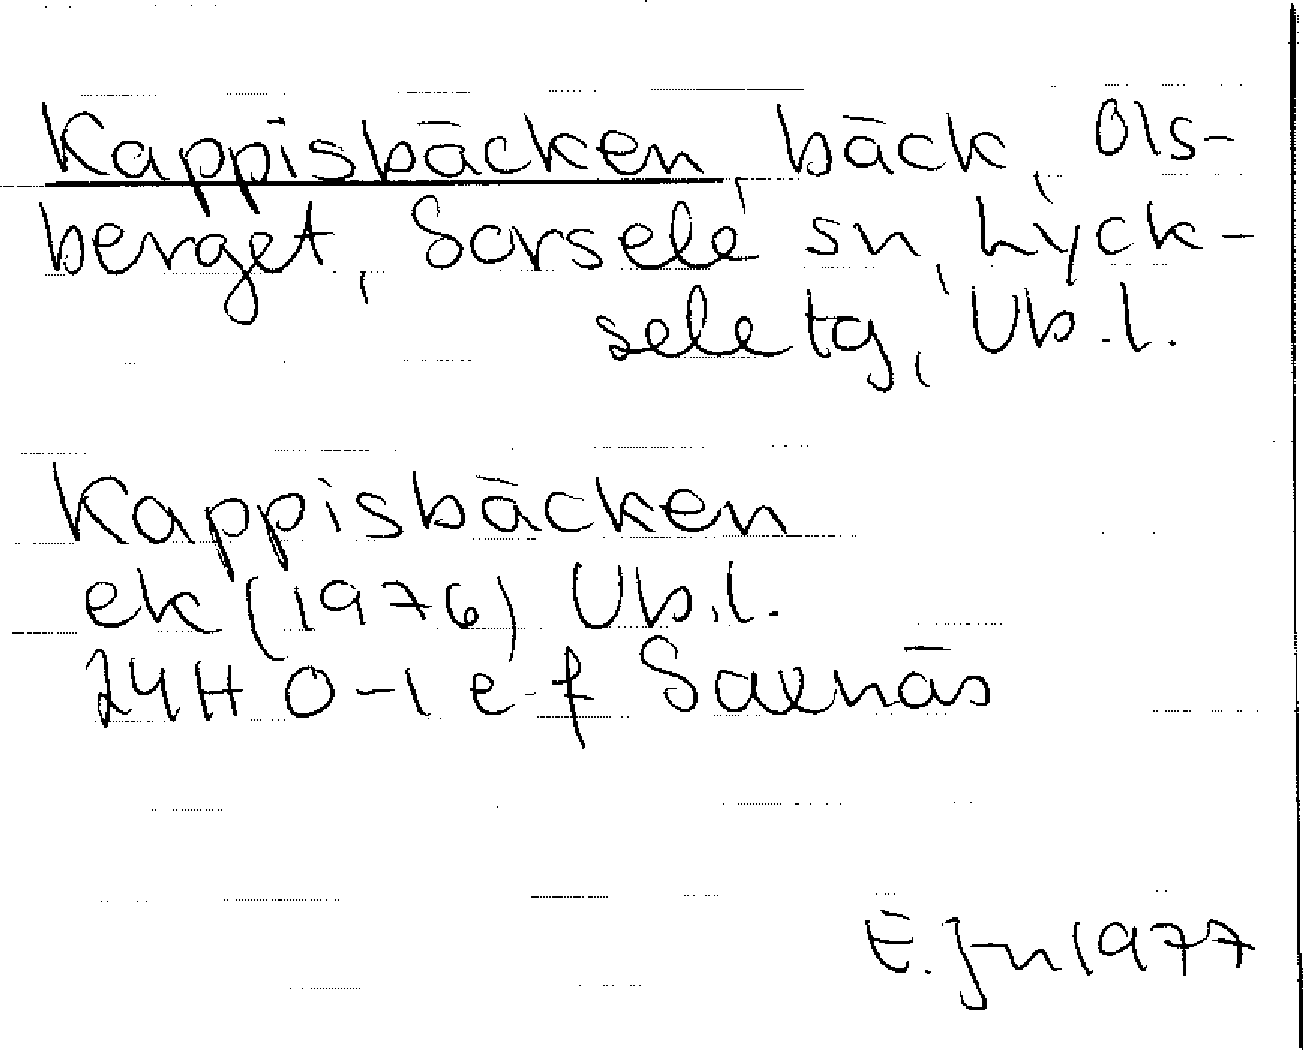 Kappisbäcken, bäck, Ols-
berget, Sorsele sn, Lyck-
sele tg, Vb.l.
Kappisbäcken
ek (1976) Vb.l.
24H 0-1 e-f Saxnäs
E. Jn 1977